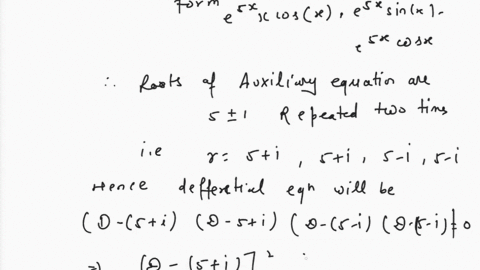 Form e^5x x cos(x), e^5x sin(x).
e^5x cosx
∴ Roots of Auxiliary equation are
5 ± 1 Repeated two tims
i.e r= 5+i , 5+i, 5-i, 5-i
Hence defferetial eqn will be
(D-(5+i) (D-5+i) (D-(5-i) (D-(5-i)=0
⇒ (D-(5+i)]²